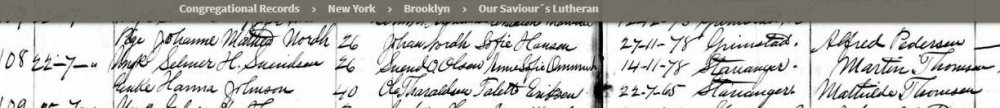 Congregational Records › New York › Brooklyn › Our Saviour´s Lutheran
Pige Johanne Mathea Nordh 26 Johan Nordh Sofie Hansen 27-11-78 Grimstad. Alfred Pedersen
108 22-7-" Selmer H. Svendsen 26 Svend O. Olsen Anne Sofie 14-11-78 Stavanger. Martin Thomsen
Enke Hanna Johnson 40 Ole Tharaldsen Talette Eriksen 22-7-65 Stavanger Mathilde Thomsen
109